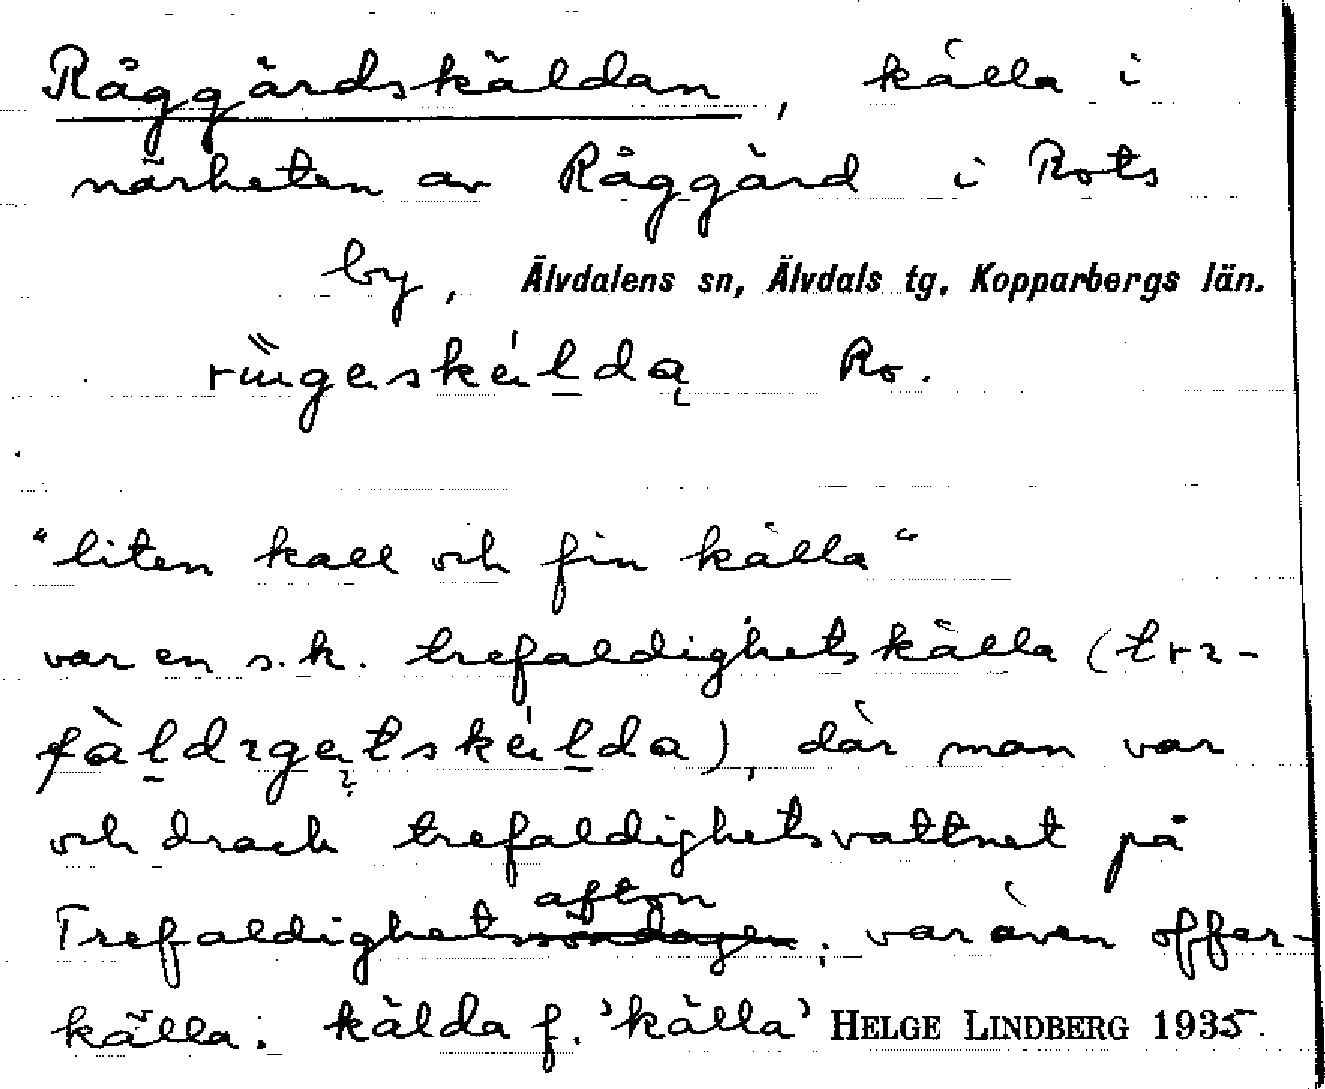 Råggärdskäldan, källa i
närheten av Råggärd i Rots
by, Älvdalens sn, Älvdals tg. Kopparbergs län.
Ro.
"liten kall och fin källa"
var en s.k. trefaldighetskälla (trɩ-
där man var
och drack trefaldighetsvattnet på
afton
Trefaldighetssöndagen; var även offer-
källa. kälda f. 'källa' HELGE LINDBERG 1935.